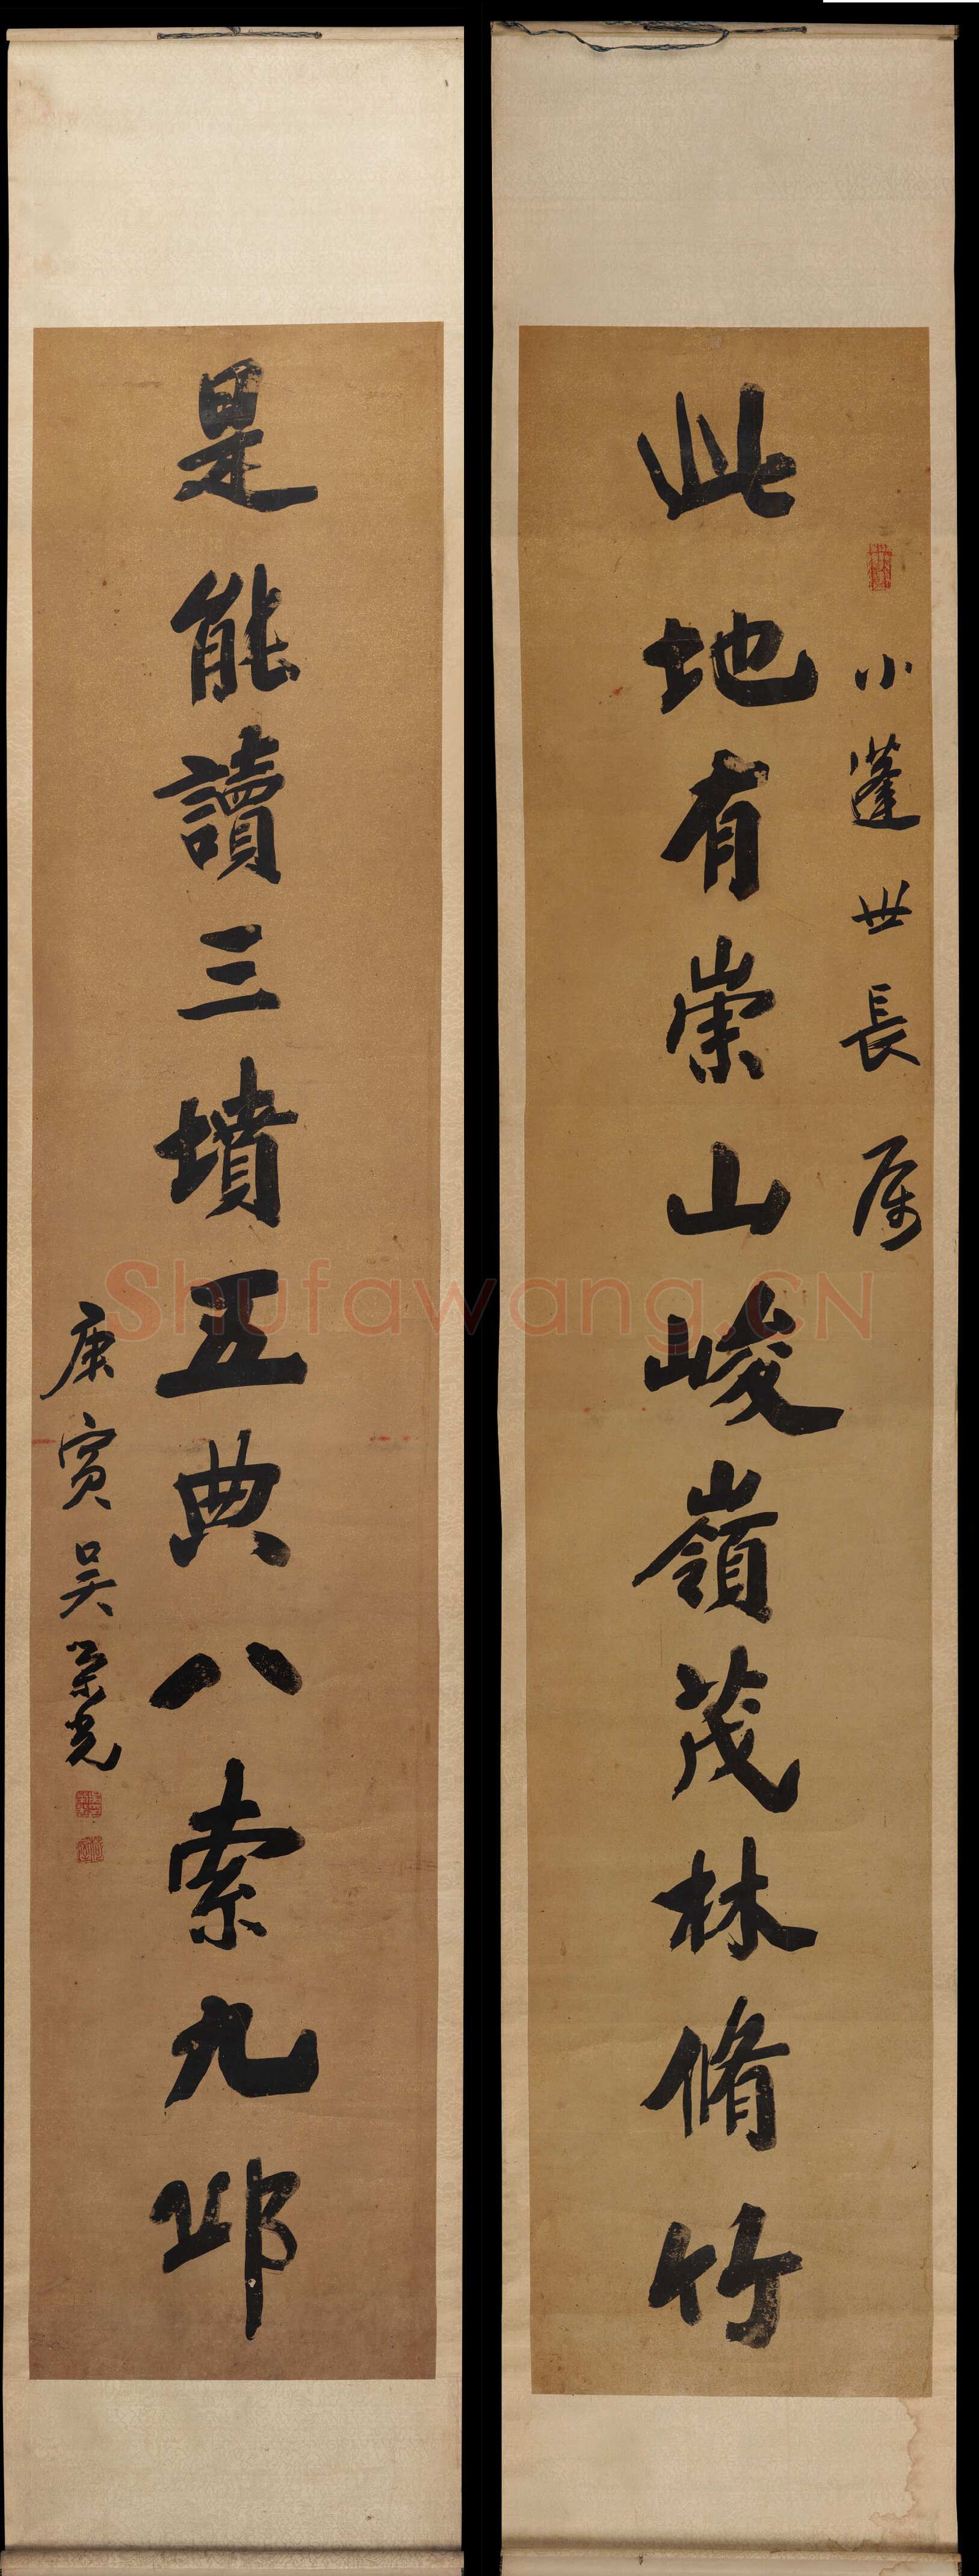 小蓬世長属
此地有崇山峻嶺茂林脩竹
是能讀三墳五典八索九邱
庚寅吴榮光
Shufawang.CN